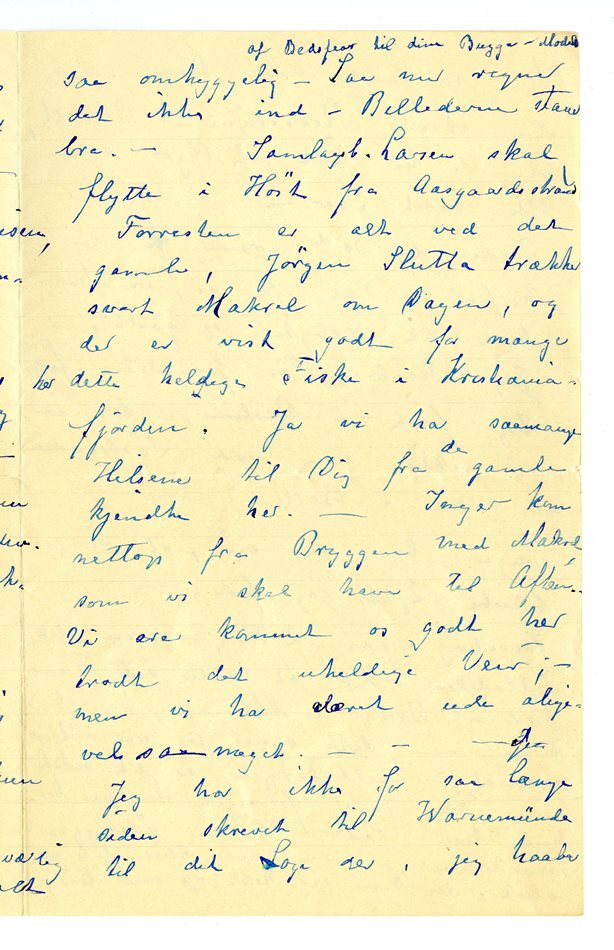 af Bedsfear til dine Bygge-Modell
saa omhyggelig – Saa nu regner
det ikke ind – Billederne staar
bra. – Samlagsb. Larsen skal
flytte i Höst fra Aasgaardsstrand
Forresten er alt ved det
gamle, Jörgen Slutta trækker
svart Makrel om Dagen, og
der er vist godt for mange
her dette heldige Fiske i Kristiania-
fjorden. Ja vi ha saamange
Hilsene til Dig fra de gamle
kjendte her. — Inger kom
nettop fra Bryggen med Makrel
som vi skal have til Aften.
Vi ere kommet os godt her
trodt det uheldige Veir; –
men vi ha været ude alige-
vel saa meget. – – –
Jeg har ikke for saa længe
siden skrevet til Warnemünde
til dit Logi der, jeg haaber